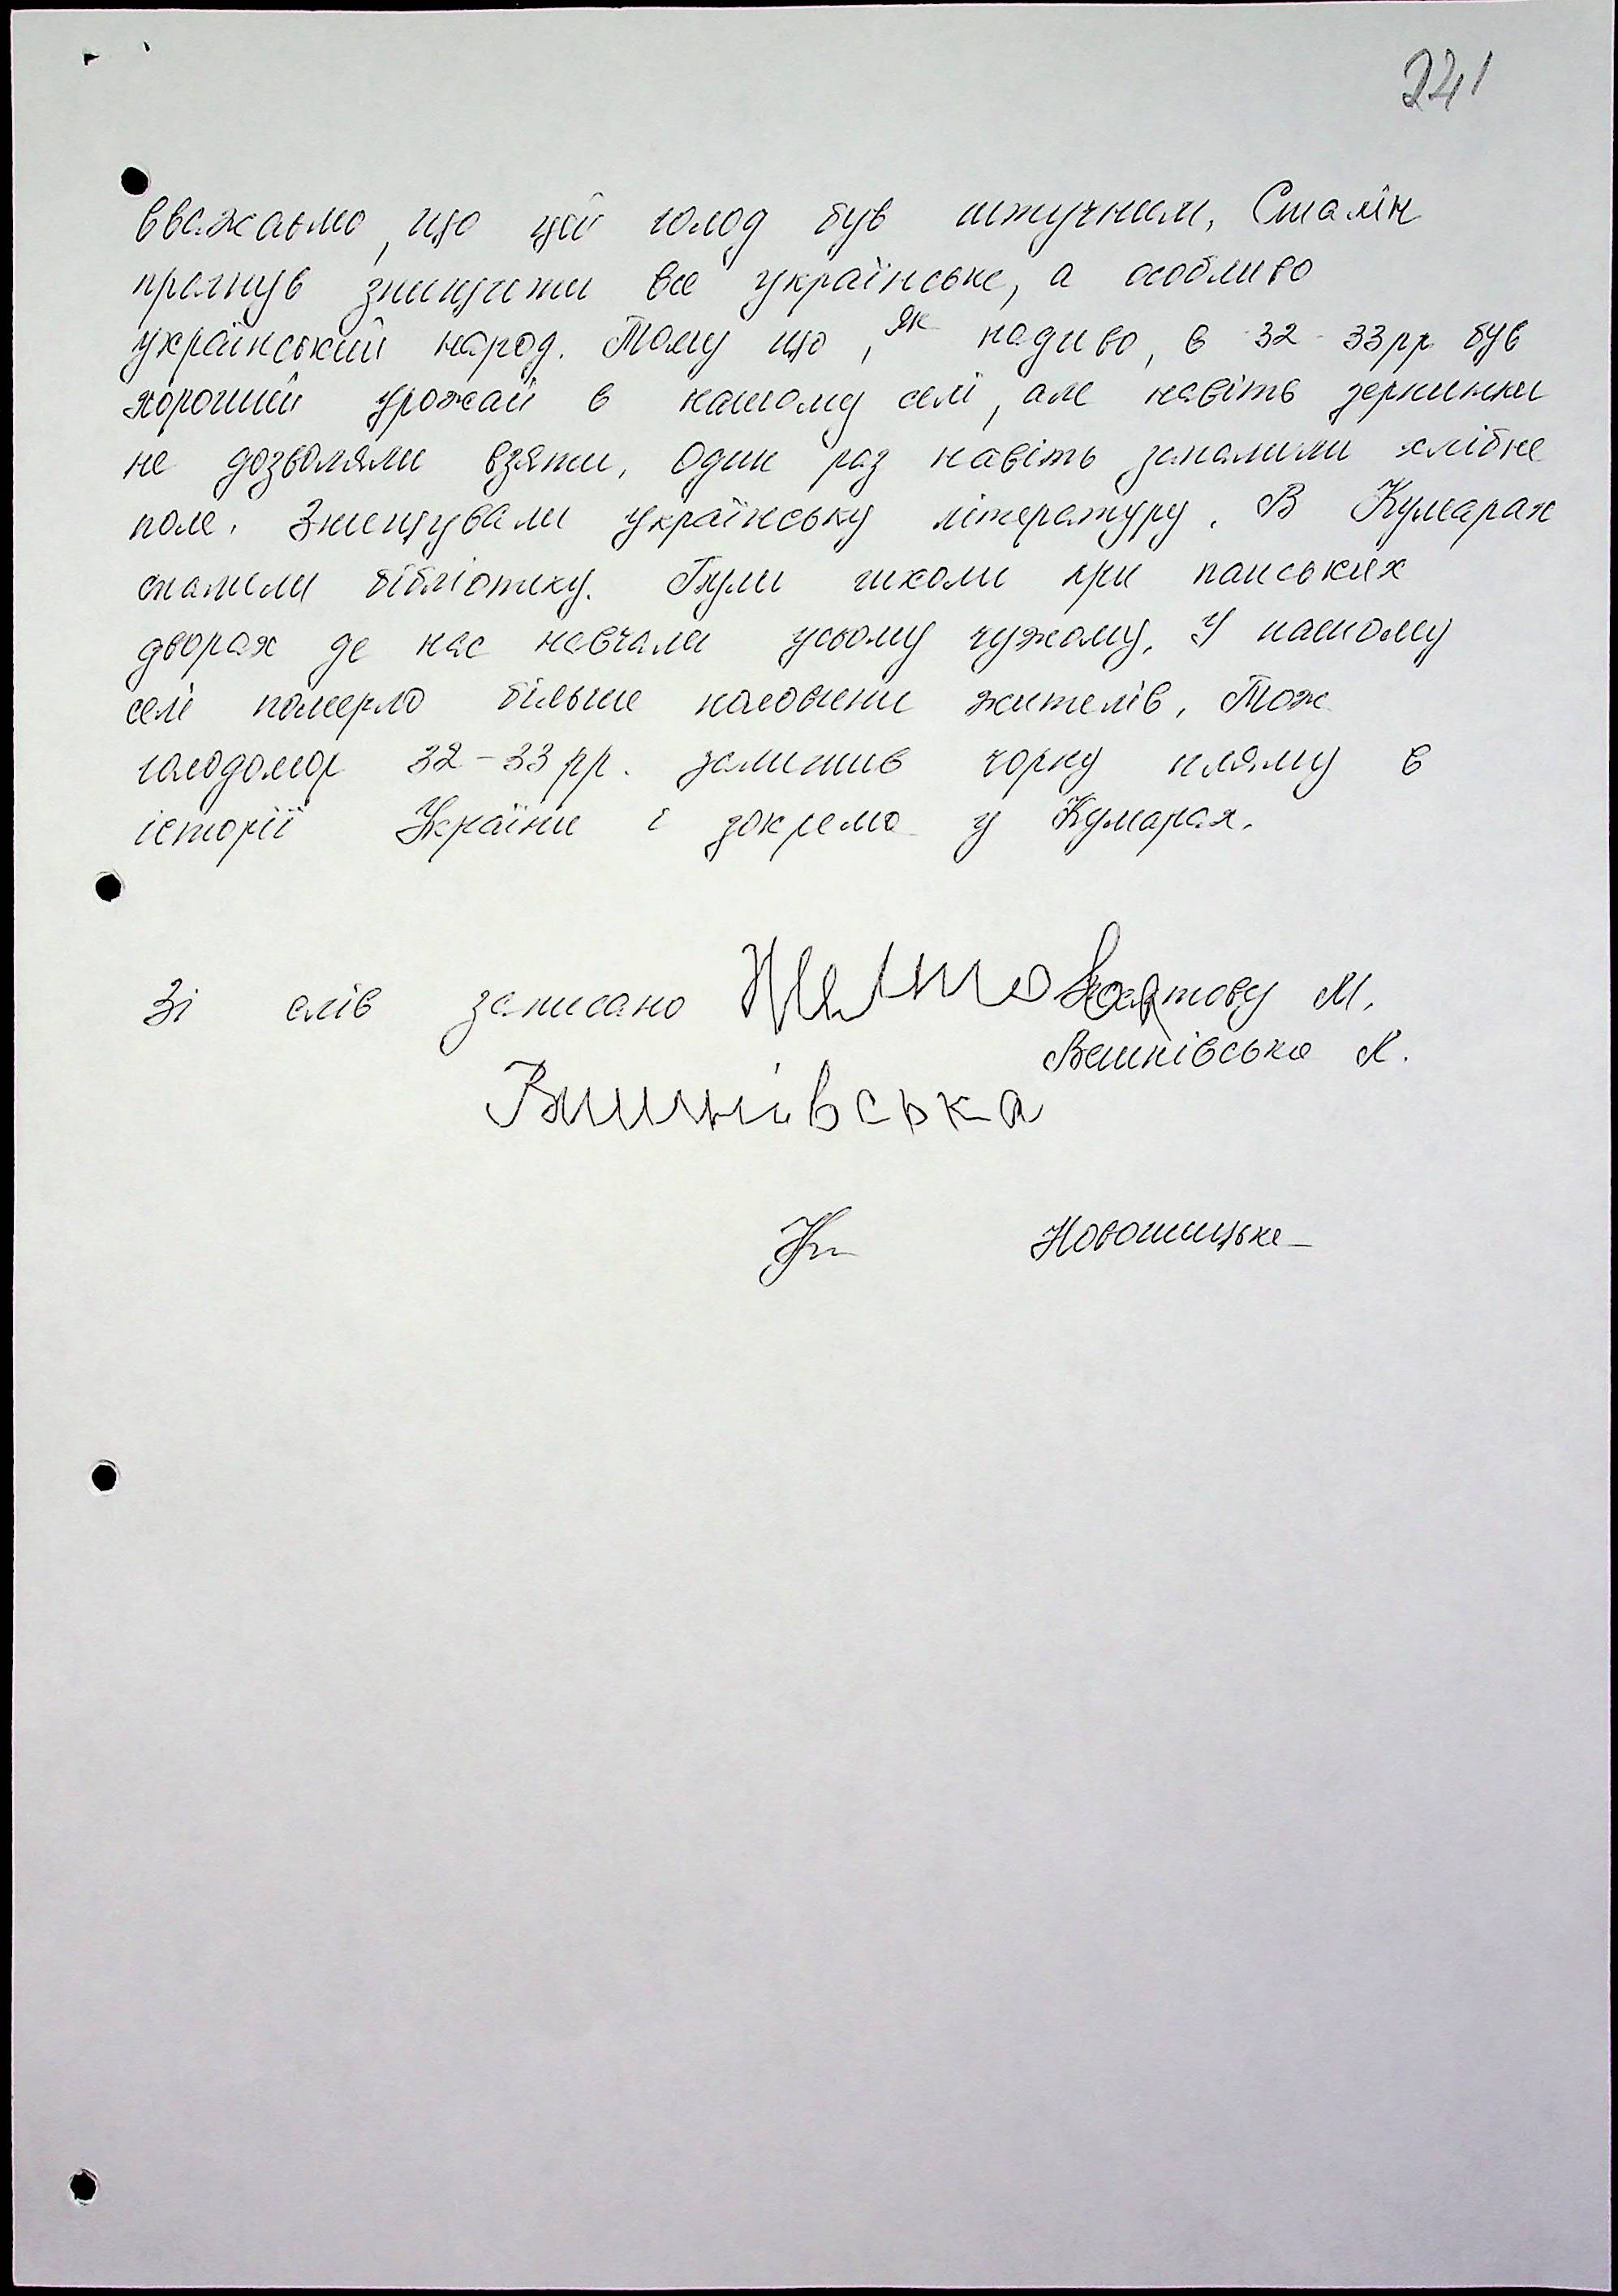 241
вважаємо, що цей голод був штучним, Сталін
прагнув знищити все українське, а особливо
український народ. Тому що, як надиво, в 32-33рр був
хороший урожай в нашому селі, але навіть зернинки
не дозволяли взяти, один раз навіть запалили хлібне
поле. Знищували українську літературу. В Кумарах
спалили бібліотеку. Були школи при панських
дворах де нас навчали усьому чужому. У нашому
селі померло більше половини жителів. Тож
голодомор 32-33 рр. залишив чорну пляму в
історії України і зокрема у Кумарах.
Зі слів записано М.
Вишнівська К.
Вишнівська
Новошицька